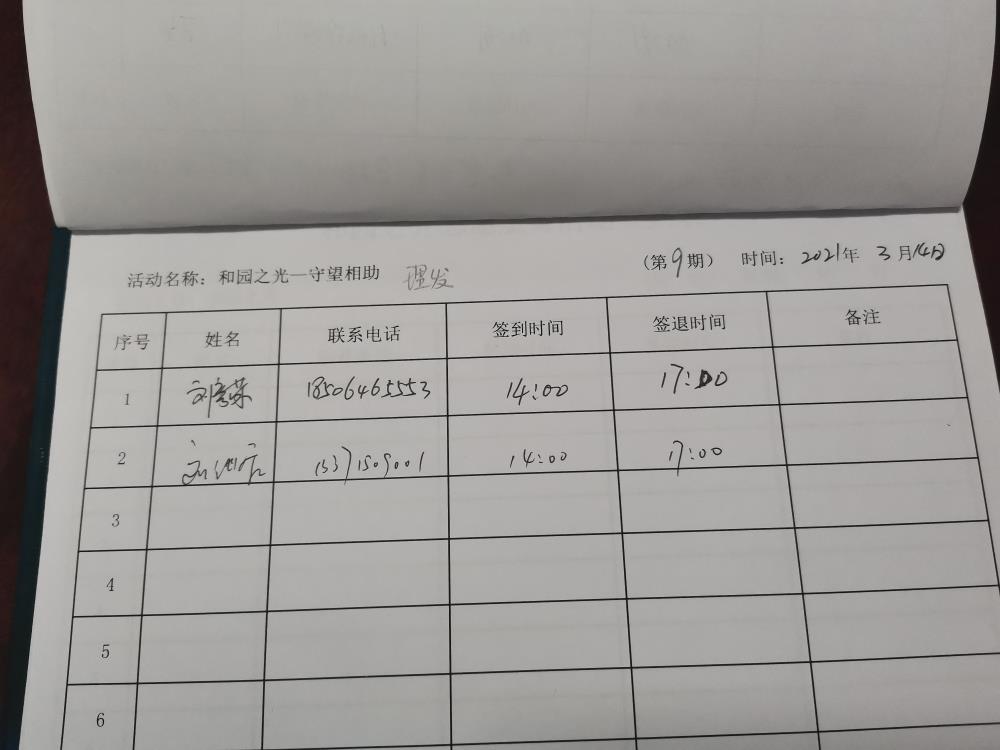 (第9期) 时间：2021年 3月14日
活动名称：和园之光—守望相助 理发
序号 姓名 联系电话 签到时间 签退时间 备注
1 18506465553 14:00 17:00
2 14:00 17:00
3
4
5
6